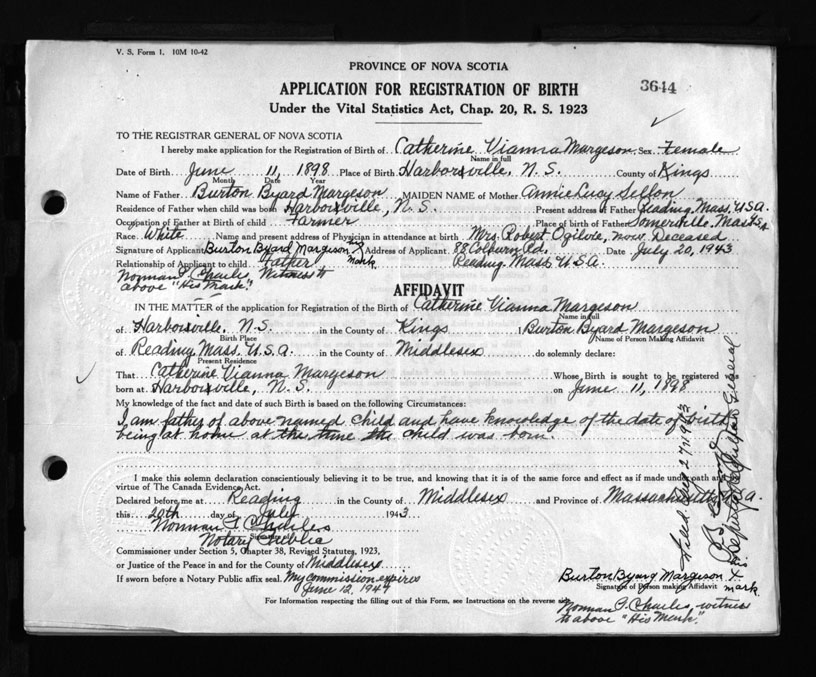 V. S. Form 1. 10M 10-42
PROVINCE OF NOVA SCOTIA
APPLICATION FOR REGISTRATION OF BIRTH
3644
Under the Vital Statistics Act, Chap. 20, R. S. 1923
TO THE REGISTRAR GENERAL OF NOVA SCOTIA
I hereby make application for the Registration of Birth of Catherine Vianna Margeson Sex Female
Name in full
Date of Birth June 11, 1898 Place of Birth Harborville, N. S. County of Kings
Month Date Year
Name of Father Burton Byard Margeson MAIDEN NAME of Mother Annie Lucy
Residence of Father when child was born Harborville, N. S. Present address of Father Reading, Mass. U.S.A.
Occupation of Father at Birth of child Farmer Place of birth of Father Somerville, Mass.
Race White Name and present address of Physician in attendance at birth Mrs. Robert Ogilvie, now Deceased
Signature of Applicant Burton Byard Margeson X Address of Applicant 88 Date July 20, 1943
Relationship of Applicant to child Father mark Reading Mass. U.S.A.
Norman G. Charles Witness to
above "His Mark"
AFFIDAVIT
IN THE MATTER of the application for Registration of the Birth of Catherine Vianna Margeson
Name in full
of Harborville, N.S. in the County of Kings I Burton Byard Margeson
Birth Place Name of Person Making Affidavit
of Reading Mass. U.S.A. in the County of Middlesex do solemnly declare:
Present Residence
That Catherine Vianna Margeson Whose Birth is sought to be registered was
born at Harborville, N. S. on June 11, 1898
My knowledge of the fact and date of such Birth is based on the following Circumstances:
I am father of above named child and have knowledge of the date of birth
being at home at the time the child was born.
I make this solemn declaration conscientiously believing it to be true, and knowing that it is of the same force and effect as if made under oath and
virtue of The Canada Evidence Act.
Declared before me at Reading in the County of Middlesex and Province of Massachusetts U.S.A.
this 20th day of July 1943
Norman G Charles
Notary Public
Commissioner under Section 5, Chapter 38, Revised Statutes, 1923,
or Justice of the Peace in and for the County of Middlesex
If sworn before a Notary Public affix seal. My commission expires
June 12, 1947
Burton Byard Margeson X
Signature of Person making Affidavit mark
For Information respecting the filling out of this Form, see Instructions on the reverse side
Norman G. Charles, witness
to above "His Mark"
Deputy Registrar General